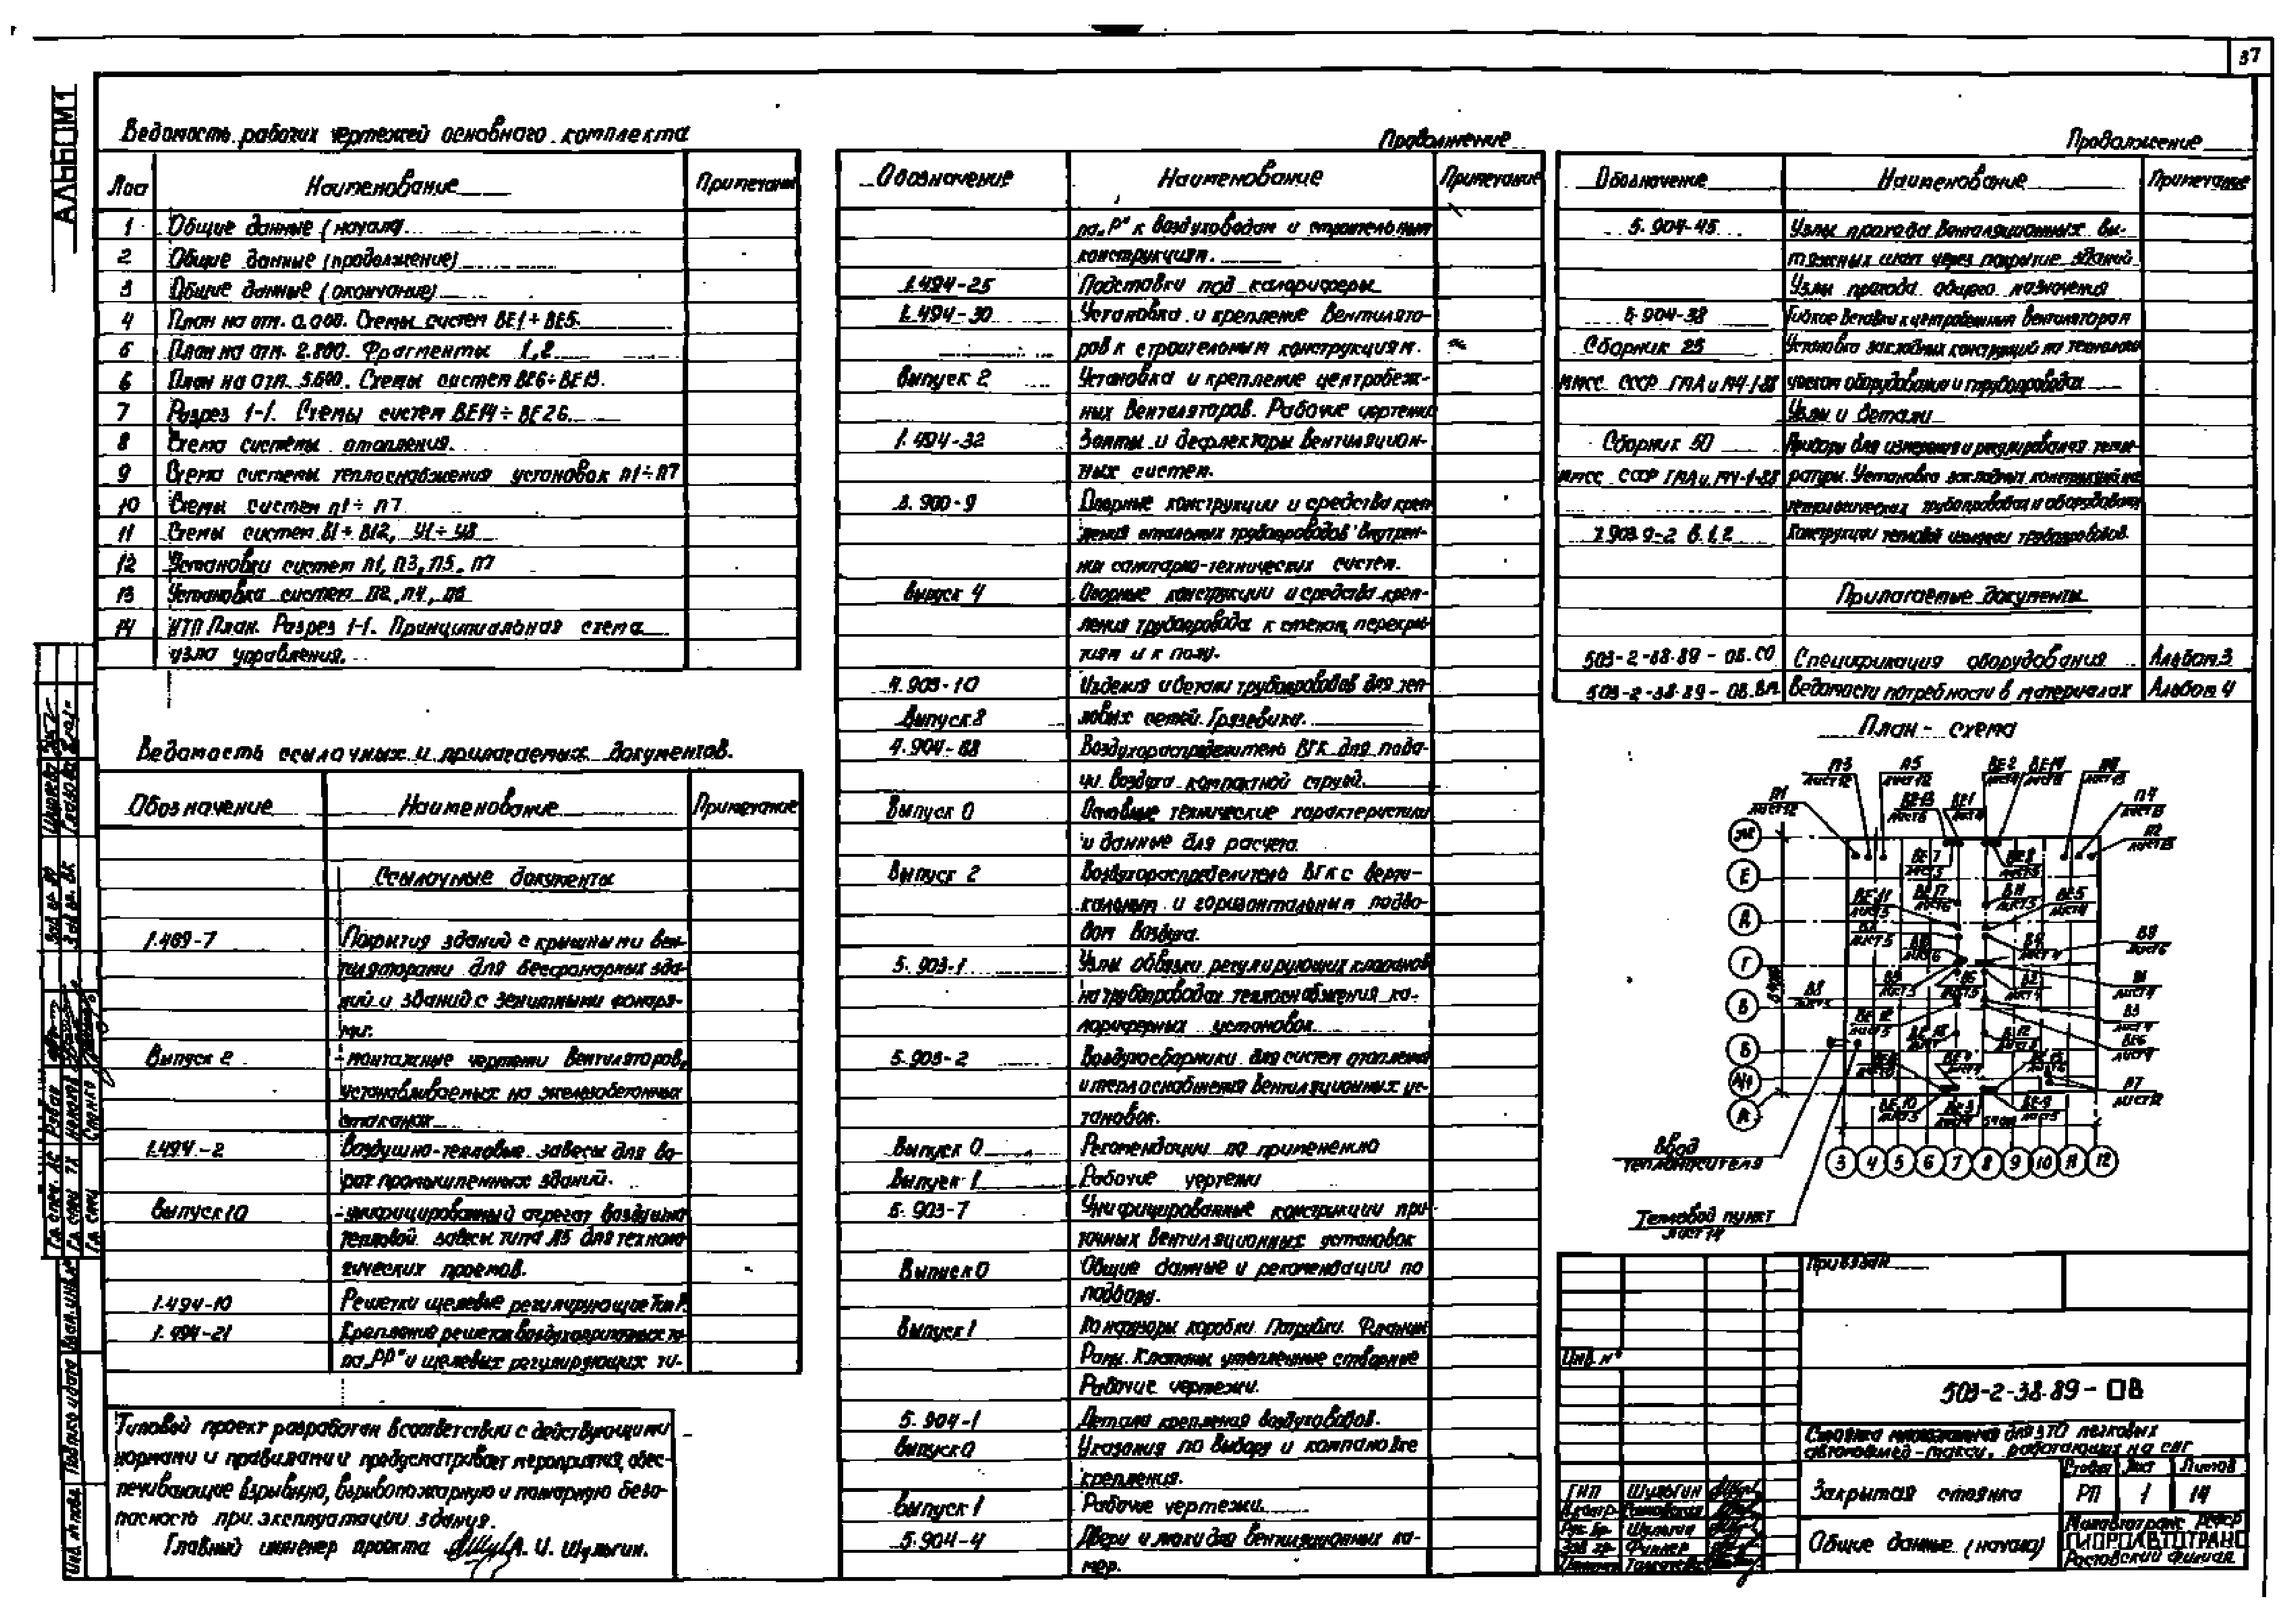 37
АЛЬБОМ 1
Ведомость рабочих чертежей основного комплекта
Лист Наименование Примечание
1 Общие данные (начало)
2 Общие данные (продолжение)
3 Общие данные (окончание)
4 План на отм. 0.000. Схемы систем ВЕ1÷ВЕ5.
5 План на отм. 2.800. Фрагменты 1,2
6 План на отм. 5.600. Схемы систем ВЕ6÷ВЕ13.
7 Разрез 1-1. Схемы систем ВЕ14÷ВЕ26
8 Схема системы отопления.
9 Схема системы теплоснабжения установок П1÷П7
10 Схемы систем П1÷П7
11 Схемы систем В1÷В12, У1÷У8
12 Установки систем П1, П3, П5, П7
13 Установка систем П2, П4, П6
14 ИТП План. Разрез 1-1. Принципиальная схема
узла управления.
Ведомость ссылочных и прилагаемых документов.
Обозначение Наименование Примечание
Ссылочные документы
1.469-7 Покрытия зданий с крышными вен-
тиляторами для бесфонарных зда-
ний и зданий с зенитными фонаря-
ми.
Выпуск 2 - монтажные чертежи вентиляторов,
устанавливаемых на железобетонных
стаканах
1.494-2 Воздушно-тепловые завесы для во-
рот промышленных зданий.
Выпуск 10 - унифицированный агрегат воздушно
тепловой завесы типа А5 для техноло
гических проемов.
1.494-10 Решетки щелевые регулирующие Тип Р.
1.494-21 Крепления решеток воздухоприточных ти-
па „РР" и щелевых регулирующих ти-
Типовой проект разработан в соответствии с действующими
нормами и правилами и предусматривает мероприятия, обес-
печивающие взрывную, взрывопожарную и пожарную безо-
пасность при эксплуатации здания.
Главный инженер проекта А. И. Шульгин.
Продолжение
Обозначение Наименование Примечание
па „Р" к воздуховодам и строительным
конструкциям.
1.494-25 Подставки под калориферы
1.494-30 Установка и крепление вентилято-
ров к строительным конструкциям.
Выпуск 2 Установка и крепление центробеж-
ных вентиляторов. Рабочие чертежи
1.494-32 Зонты и дефлекторы вентиляцион-
ных систем.
3.900-9 Опорные конструкции и средства креп
ления стальных трубопроводов внутрен-
них санитарно-технических систем.
Выпуск 4 Опорные конструкции и средства креп-
ления трубопровода к стенам, перекры-
тиям и к полу.
4.903-10 Изделия и детали трубопроводов для теп-
Выпуск 8 ловых сетей. Грязевики.
4.904-68 Воздухораспределитель ВГК для пода-
чи воздуха компактной струей.
Выпуск 0 Основные технические характеристики
и данные для расчета.
Выпуск 2 Воздухораспределитель ВГК с верти-
кальным и горизонтальным подво-
дом воздуха.
5.903-1 Узлы обвязки регулирующих клапанов
на трубопроводах теплоснабжения ка-
лориферных установок
5.903-2 Воздухосборники для систем отопления
и теплоснабжения вентиляционных ус-
тановок.
Выпуск 0 Рекомендации по применению
Выпуск 1 Рабочие чертежи
5.903-7 Унифицированные конструкции при-
точных вентиляционных установок
Выпуск 0 Общие данные и рекомендации по
подбору.
Выпуск 1 Конфузоры коробки. Патрубки. Фланцы
Рамы. Клапаны утепленные створные
Рабочие чертежи.
5.904-1 Детали крепления воздуховодов.
Выпуск 0 Указания по выбору и компановке
крепления.
Выпуск 1 Рабочие чертежи.
5.904-4 Двери и люки для вентиляционных ка-
мер.
Продолжение
Обозначение Наименование Примечание
5.904-45 Узлы прохода вентиляционных вы-
тяжных шахт через покрытие зданий
Узлы прохода общего назначения
5.904-38 Гибкие вставки к центробежным вентиляторам
Сборник 25 Установка закладных конструкций на технологи
ММСС СССР ГМА и МЧ-1-88 ческом оборудовании и трубопроводах
Узлы и детали
Сборник 50 Приборы для измерения и регулирования темпе-
ММСС СССР ГМА и МЧ-1-88 ратуры. Установка закладных конструкций на
технологических трубопроводах и оборудовании
7.903.9-2 в.1,2 Конструкции тепловой изоляции трубопроводов.
Прилагаемые документы
503-2-38.89 - ОВ.СО Спецификация оборудования Альбом 3
503-2-38.89 - ОВ.ВМ Ведомости потребности в материалах Альбом 4
План - схема
П3 лист 12
П5 лист 12
ВЕ2 ВЕ14
П1 лист 12
П4 лист 13
П2 лист 13
Ж Е Д Г В Б А/1 А
3 4 5 6 7 8 9 10 11 12
П7 лист 12
Ввод
теплоносителя
Тепловой пункт
лист 14
Привязан
Инв. №
503-2-38.89 - ОВ
автомобилей-такси, работающих на СНГ
Закрытая стоянка
Стадия Лист Листов
РП 1 14
Общие данные (начало)
Минавтотранс РСФСР
ГИПРОАВТОТРАНС
Ростовский филиал
ГИП Шульгин